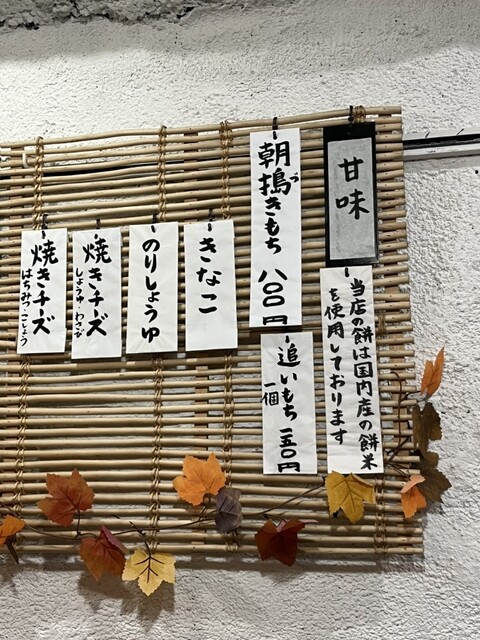 甘味
当店の餅は国内産の餅米
を使用しております
朝搗きもち 八〇〇円
づ
追いもち 一五〇円
一個
きなこ
のりしょうゆ
焼きチーズ
しょうゆ・わさび
焼きチーズ
はちみつ・こしょう